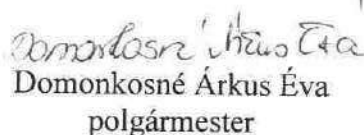 Domonkosné Árkus Éva
Domonkosné Árkus Éva
polgármester